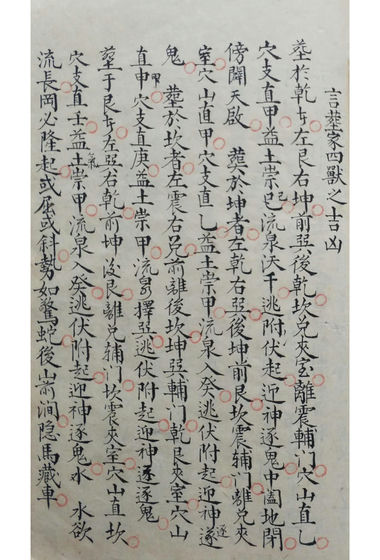 言塟家四獸之吉凶
塟於乾者左艮右坤前巽後乾坎兌夾室離震輔门穴山直乙
穴支直甲益土崇巳流泉沃千逃附伏起迎神逐鬼中闔地閉
傍闢天啟 塟於坤者左乾右巽後坤前艮坎震辅门離兌夾
室穴山直甲穴支直乙益土崇甲流泉入癸逃伏附起迎神逐
鬼 塟於坎者左震右兌前離後坎坤巽輔门乾艮夾室穴山
直甲穴支直庚益土崇甲流泉擇巽逃伏附起迎神逐逐鬼
塟于艮者左巽右乾前坤後艮離兌辅门坎震夾室穴山直坎
穴支直壬益土崇甲流泉入癸逃伏附起迎神逐鬼水 水欲
流長岡必隆起或屈或斜勢如驚蛇後山前澗隐馬藏車